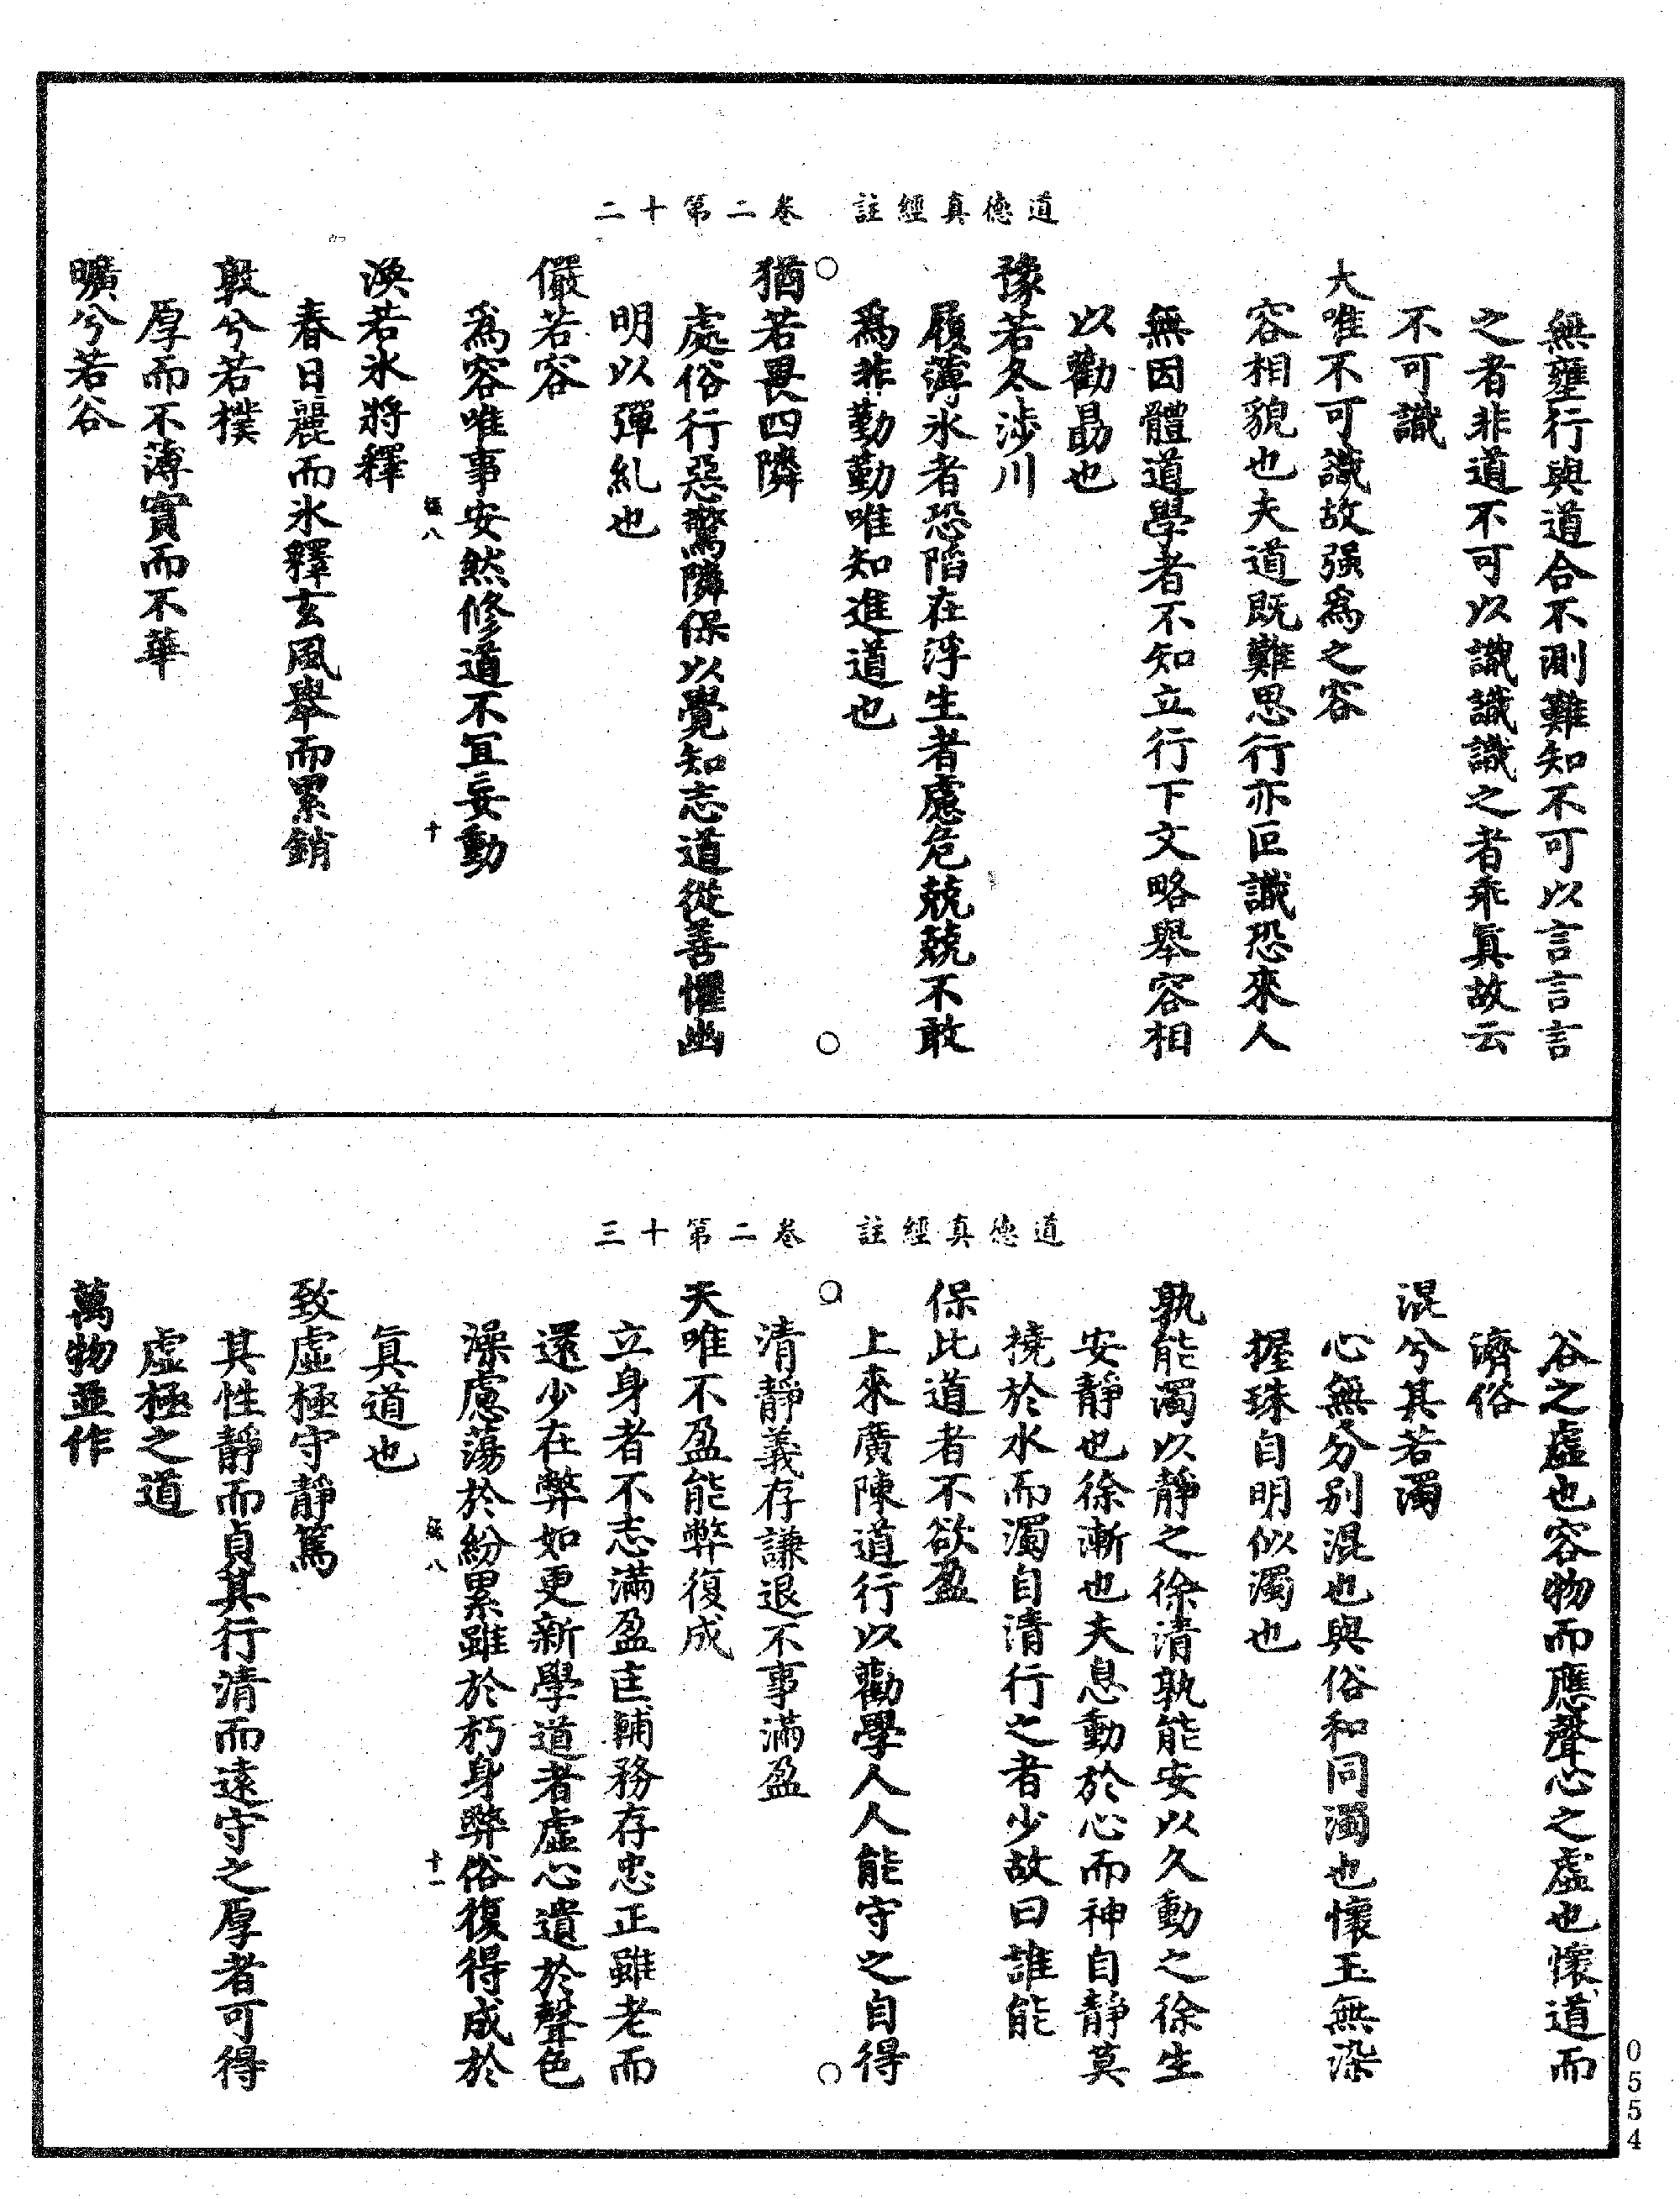 道德真經註　卷二第十二
無壅行與道合不測難知不可以言言言
之者非道不可以識識識之者乖真故云
不可識
夫唯不可識故强為之容
容相貌也夫道既難思行亦叵識恐來人
無因體道學者不知立行下文略舉容相
以勸勗也
豫若冬涉川
履薄氷者恐陷在浮生者慮危兢兢不敢
為非勤勤唯知進道也
猶若畏四隣
處俗行惡驚隣保以覺知志道從善懼幽
明以彈糺也
儼若容
為容唯事安然修道不冝妄動
八　十
渙若氷將釋
春日麗而氷釋玄風舉而累銷
敦兮若樸
厚而不薄實而不華
曠兮若谷
道德真經註　卷二第十三
谷之虛也容物而應聲心之虛也懷道而
濟俗
混兮其若濁
心無分別混也與俗和同濁也懷玉無染
握珠自明似濁也
孰能濁以靜之徐清孰能安以久動之徐生
安靜也徐漸也夫息動於心而神自靜莫
撓於水而濁自清行之者少故曰誰能
保此道者不欲盈
上來廣陳道行以勸學人人能守之自得
清靜義存謙退不事滿盈
夫唯不盈能弊復成
立身者不志滿盈匡輔務存忠正雖老而
還少在弊如更新學道者虛心遺於聲色
澡慮蕩於紛累雖於朽身弊俗復得成於
八　十一
真道也
致虛極守靜篤
其性靜而貞其行清而遠守之厚者可得
虛極之道
萬物並作
0554